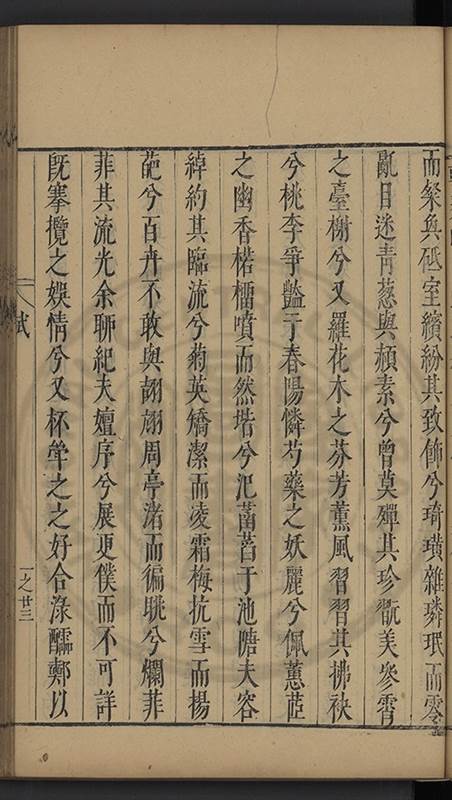 而粲奐砥室繽紛其致飾兮琦璜雜璘珉而零
亂目迷青蔥與頳素兮曾莫殫其珍翫美參霄
之臺榭兮又羅花木之芬芳薰風習習其拂袂
兮桃李爭豔于春陽憐芍藥之妖麗兮佩蕙茝
之幽香楉榴噴而然堦兮汜菡萏于池塘夫容
綽約其臨流兮菊英矯潔而凌霜梅抗雪而揚
葩兮百卉不敢與翃周亭渚而徧眺兮爛菲
菲其流光余聊紀夫嬗序兮展更僕而不可詳
旣搴攬之娛情兮又杯斝之之好合淥醽鄭以
賦
一之廿三